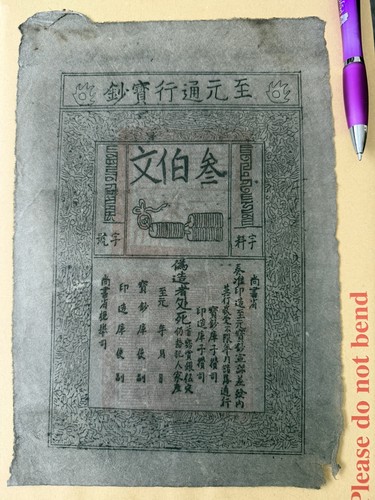 至元通行寶鈔
叁伯文
字料
字號
尚書省
奏准印造至元寶鈔宣課差發內
並行收受不限年月諸路通行
寶鈔庫子攢司
印造庫子攢司
偽造者處死
首告者賞銀伍定
仍給犯人家產
至元 年 月 日
寶鈔庫使副
印造庫使副
尚書省提舉司
Please do not bend